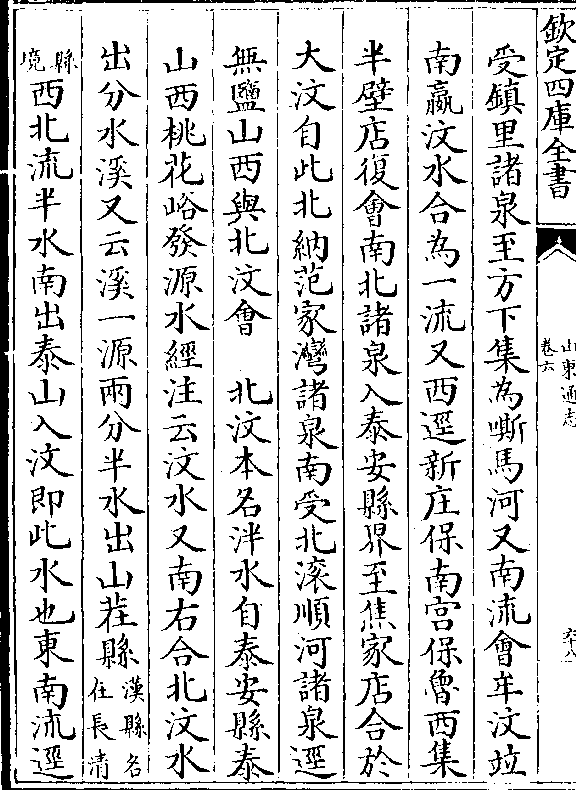 欽定四庫全書
山東通志
卷六
受鎮里諸泉至方下集為嘶馬河又南流會牟汶竝
南嬴汶水合為一流又西逕新庄保南宫保魯西集
半壁店復會南北諸泉入泰安縣界至焦家店合於
大汶自此北納范家灣諸泉南受北滚順河諸泉逕
無鹽山西與北汶會　北汶本名泮水自泰安縣泰
山西桃花峪發源水經注云汶水又南右合北汶水
出分水溪又云溪一源兩分半水出山茌縣漢縣名在長清
縣境西北流半水南出泰山入汶即此水也東南流逕